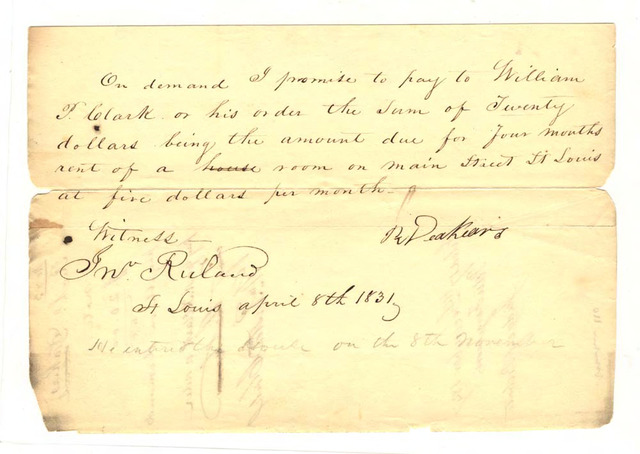 On demand I promise to pay to William
T. Clark or his order the Sum of Twenty
dollars being the amount due for four months
rent of a house room on main Street St Louis
at five dollars per month
Witness
Jno. Ruland
St Louis april 8th 1831
He entered the house on the 8th November